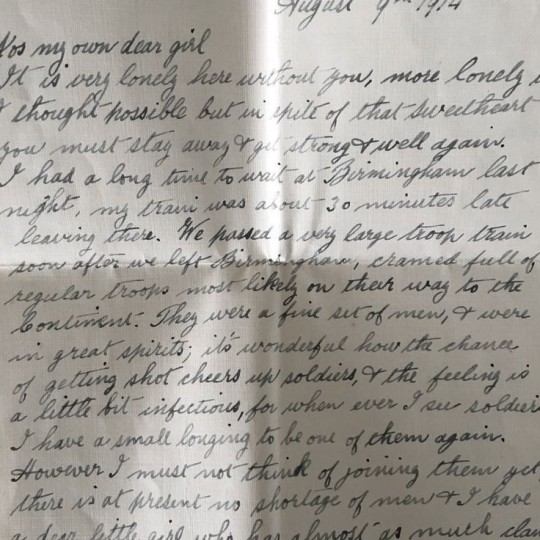 August 9th 1914
Yes my own dear girl
It is very lonely here without you, more lonely
I thought possible but in spite of that sweetheart
you must stay away & get strong & well again.
I had a long time to wait at Birmingham last
night, my train was about 30 minutes late
leaving there. We passed a very large troop train
soon after we left Birmingham, cramed full of
regular troops most likely on their way to the
Continent. They were a fine set of men, & were
in great spirits; it's wonderful how the chance
of getting shot cheers up soldiers, & the feeling is
a little bit infectious, for when ever I see soldiers
I have a small longing to be one of them again.
However I must not think of joining them yet
there is at present no shortage of men & I have
a dear little girl who has almost as much claim